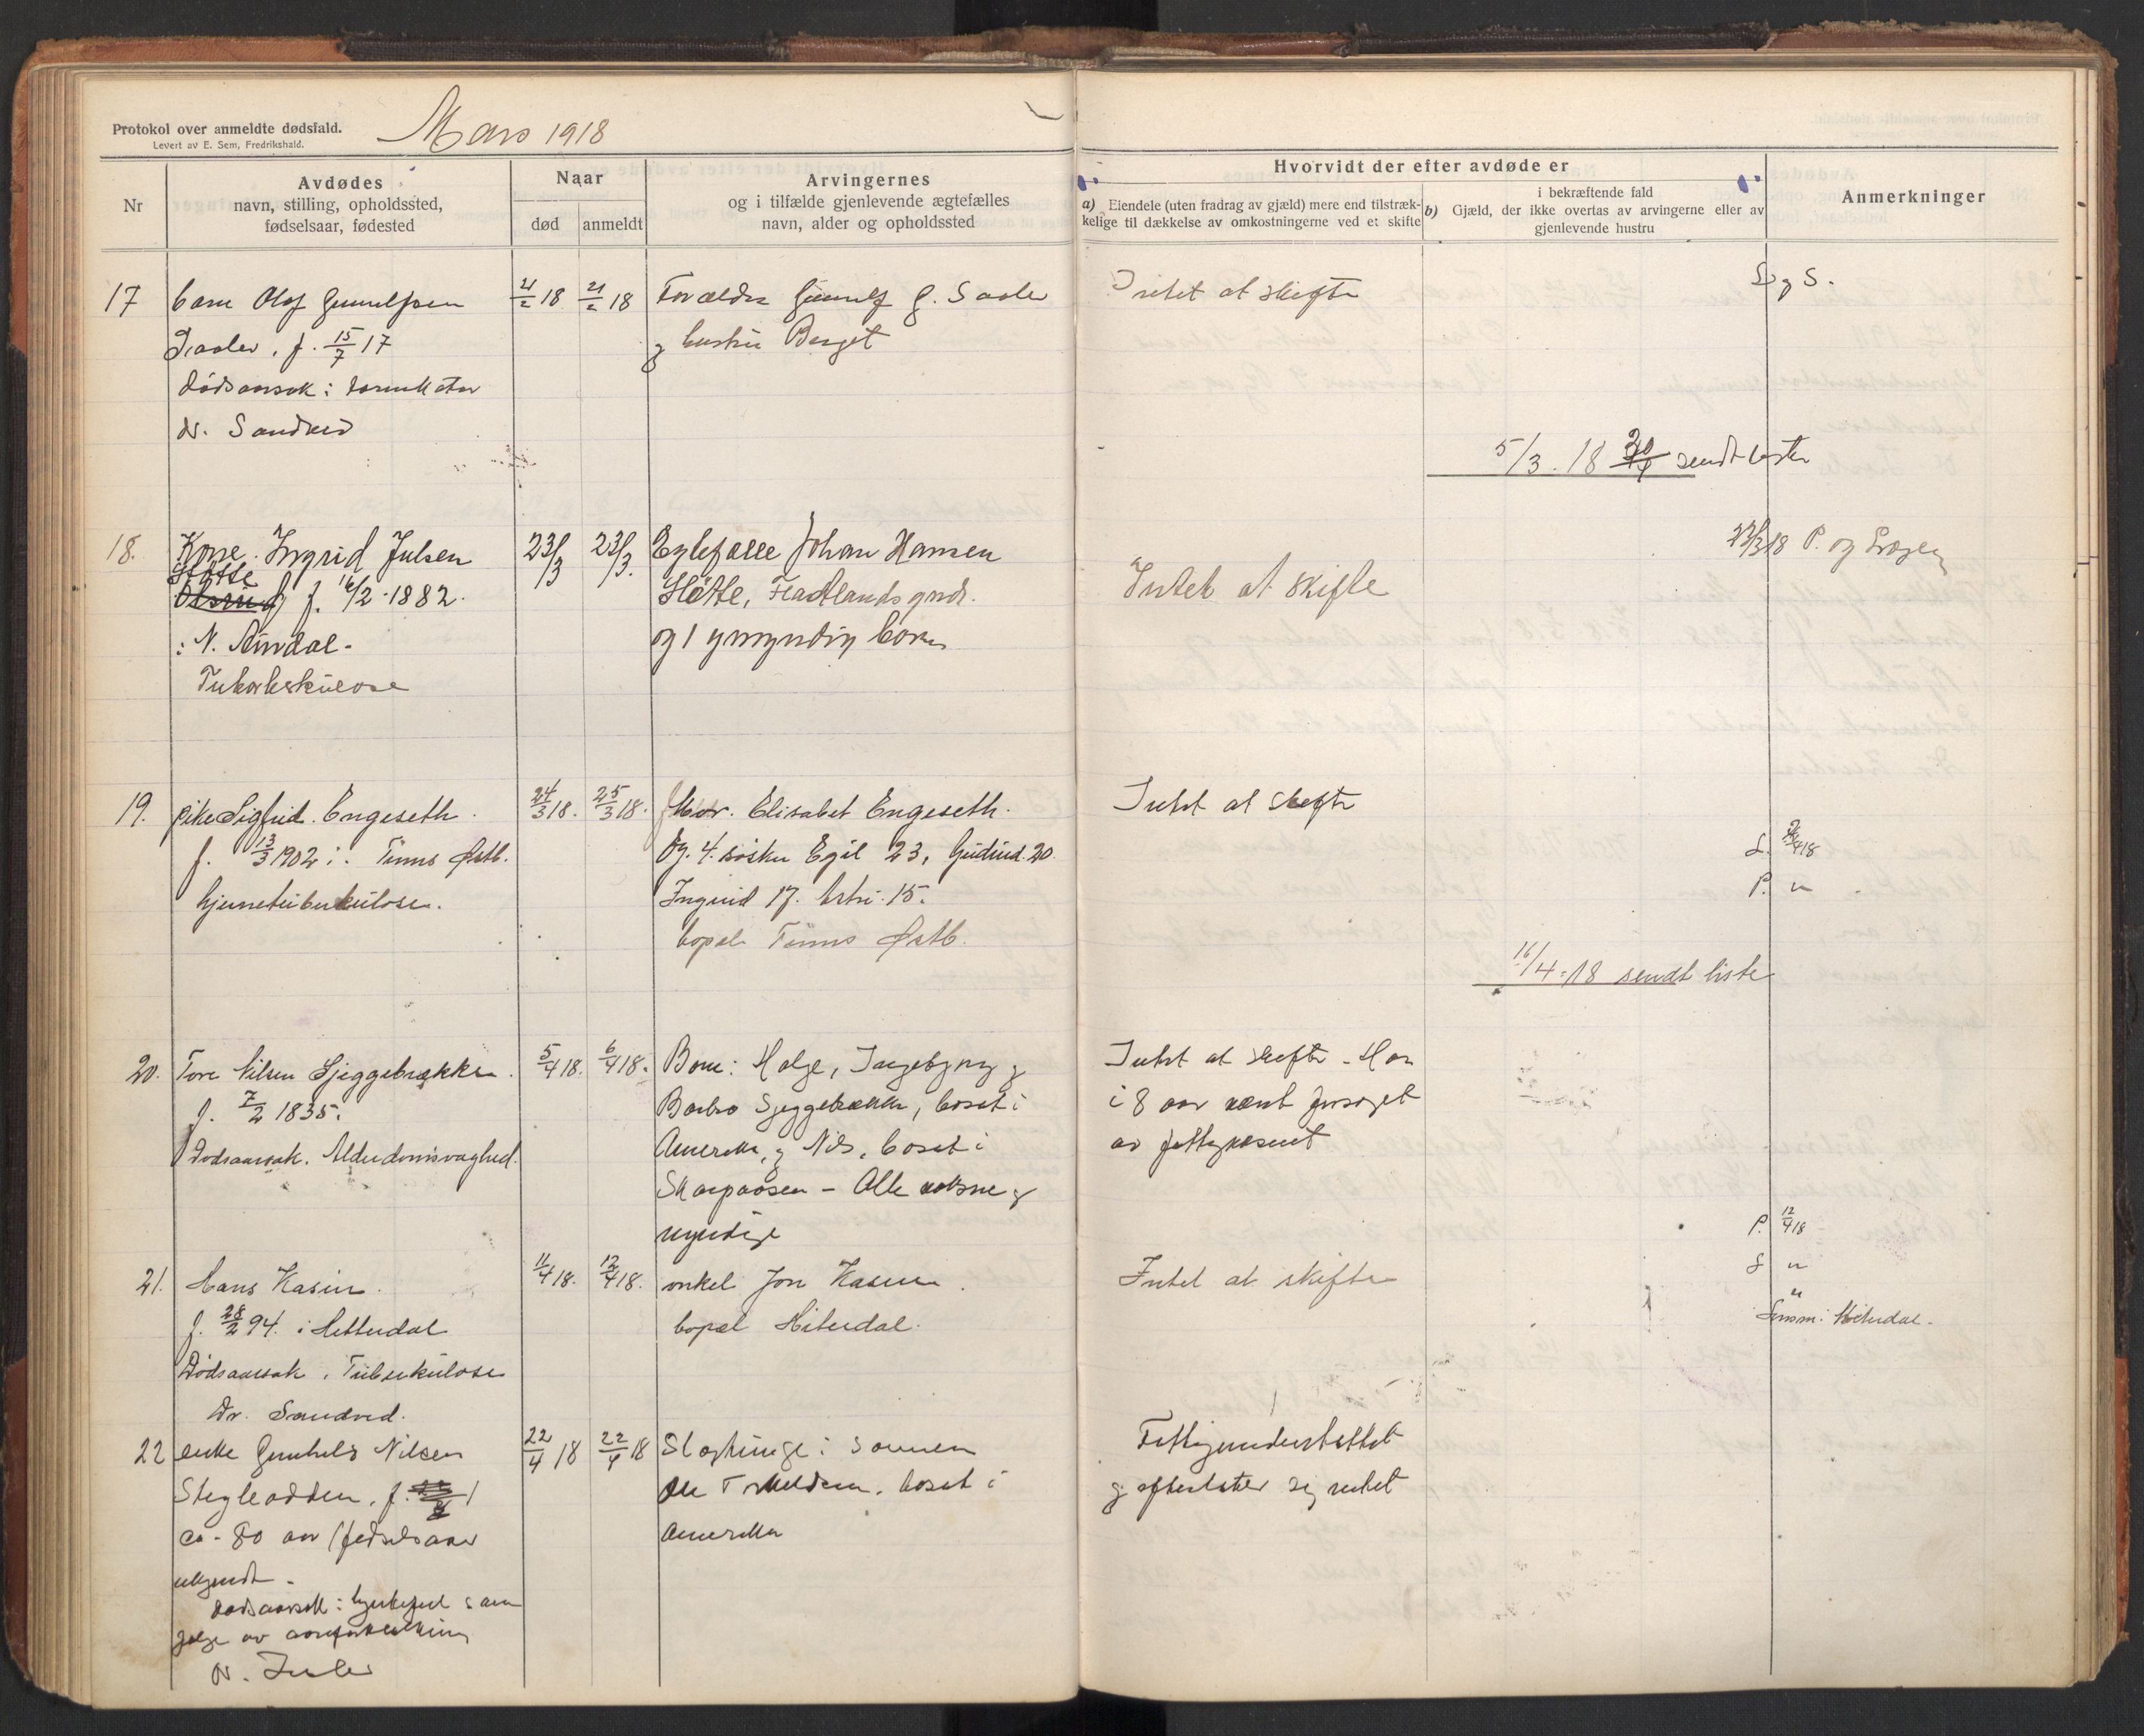 Protokol over anmeldte dødsfald.
Levert av E. Sem, Fredrikshald.
Mars 1918
Nr
Avdødes
navn, stilling, opholdssted,
fødselsaar, fødested
Naar
død
anmeldt
Arvingernes
og i tilfælde gjenlevende ægtefælles
navn, alder og opholdssted
Hvorvidt der efter avdøde er
a) Eiendele (uten fradrag av gjæld) mere end tilstræk-
kelige til dækkelse av omkostningerne ved et skifte
i bekræftende fald
b) Gjæld, der ikke overtas av arvingerne eller av
gjenlevende hustru
Anmerkninger
17 barn Olaf Gunnulfsen
f. 15/7 17
dødsaarsak:
Dr. Sandvid
21/2 18 21/2 18
Forældre Gunnulf G.
og hustru Berget
Intet at skifte
S og S.
5/3 . 18 sendt liste
18. Kone. Ingrid Julsen
Støtte
f. 16/2 - 1882.
: N. Aindal -
Tuberkulose
23/3 23/3.
Egtefælle Johan Hansen
og 1 umyndig barn
Intet at skifte
23/3 18 P. og
19. pike Sigfrid. Engeseth.
f. 13/3 1902 i. Tinns Østb.
hjernetuberkulose.
24/3 18. 25/3 18.
Mor. Elisabet Engeseth.
Og. 4. søsken Egil 23, Gudrid. 20.
Ingrid 17. Astri. 15.
bopæl Tinns Østb.
Intet at skifte
S. 2/4 18
P. "
16/4 - 18 sendt liste
20. Tore Nilsen Sjeggebrække.
f. 7/2 1835.
Dødsaarsak. Alderdomsvaghed.
5/4 18. 6/4 18.
Barn: Halge, Ingebjørg og
Barbro Sjeggebrække, bosat i
Amerika, og Nils, bosat i
Skarpaasen - Alle voksne og
myndige
Intet at skifte - Har
i 8 aar været forsørget
av fattigvæsenet
P. 12/4 18
S "
"
21. Hans Kasin.
f. 28/2 94. i Hitterdal
Dødsaarsak. Tuberkulose
Dr. Sandvid.
11/4 18. 12/4 18.
onkel Jon Kasin.
bopæl Hiterdal.
Intet at skifte
Lensm. i Hiterdal.
22 enke Gunhild Nilsen
f.
ca. 80 aar (fødselsaar
ukjendt -
dødsaarsak: hjertefeil som
følge av aareforkalkning
Dr.
22/4 18 22/4 18
Slegtninge: sønnen
Ole bosat i
Amerika
Fattigunderstøttet
og efterlater sig intet